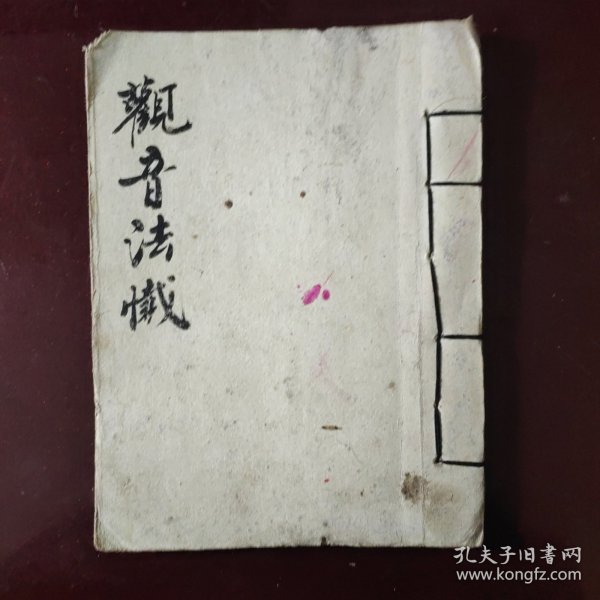 觀音法懺
孔夫子旧書网
www.kongfz.com